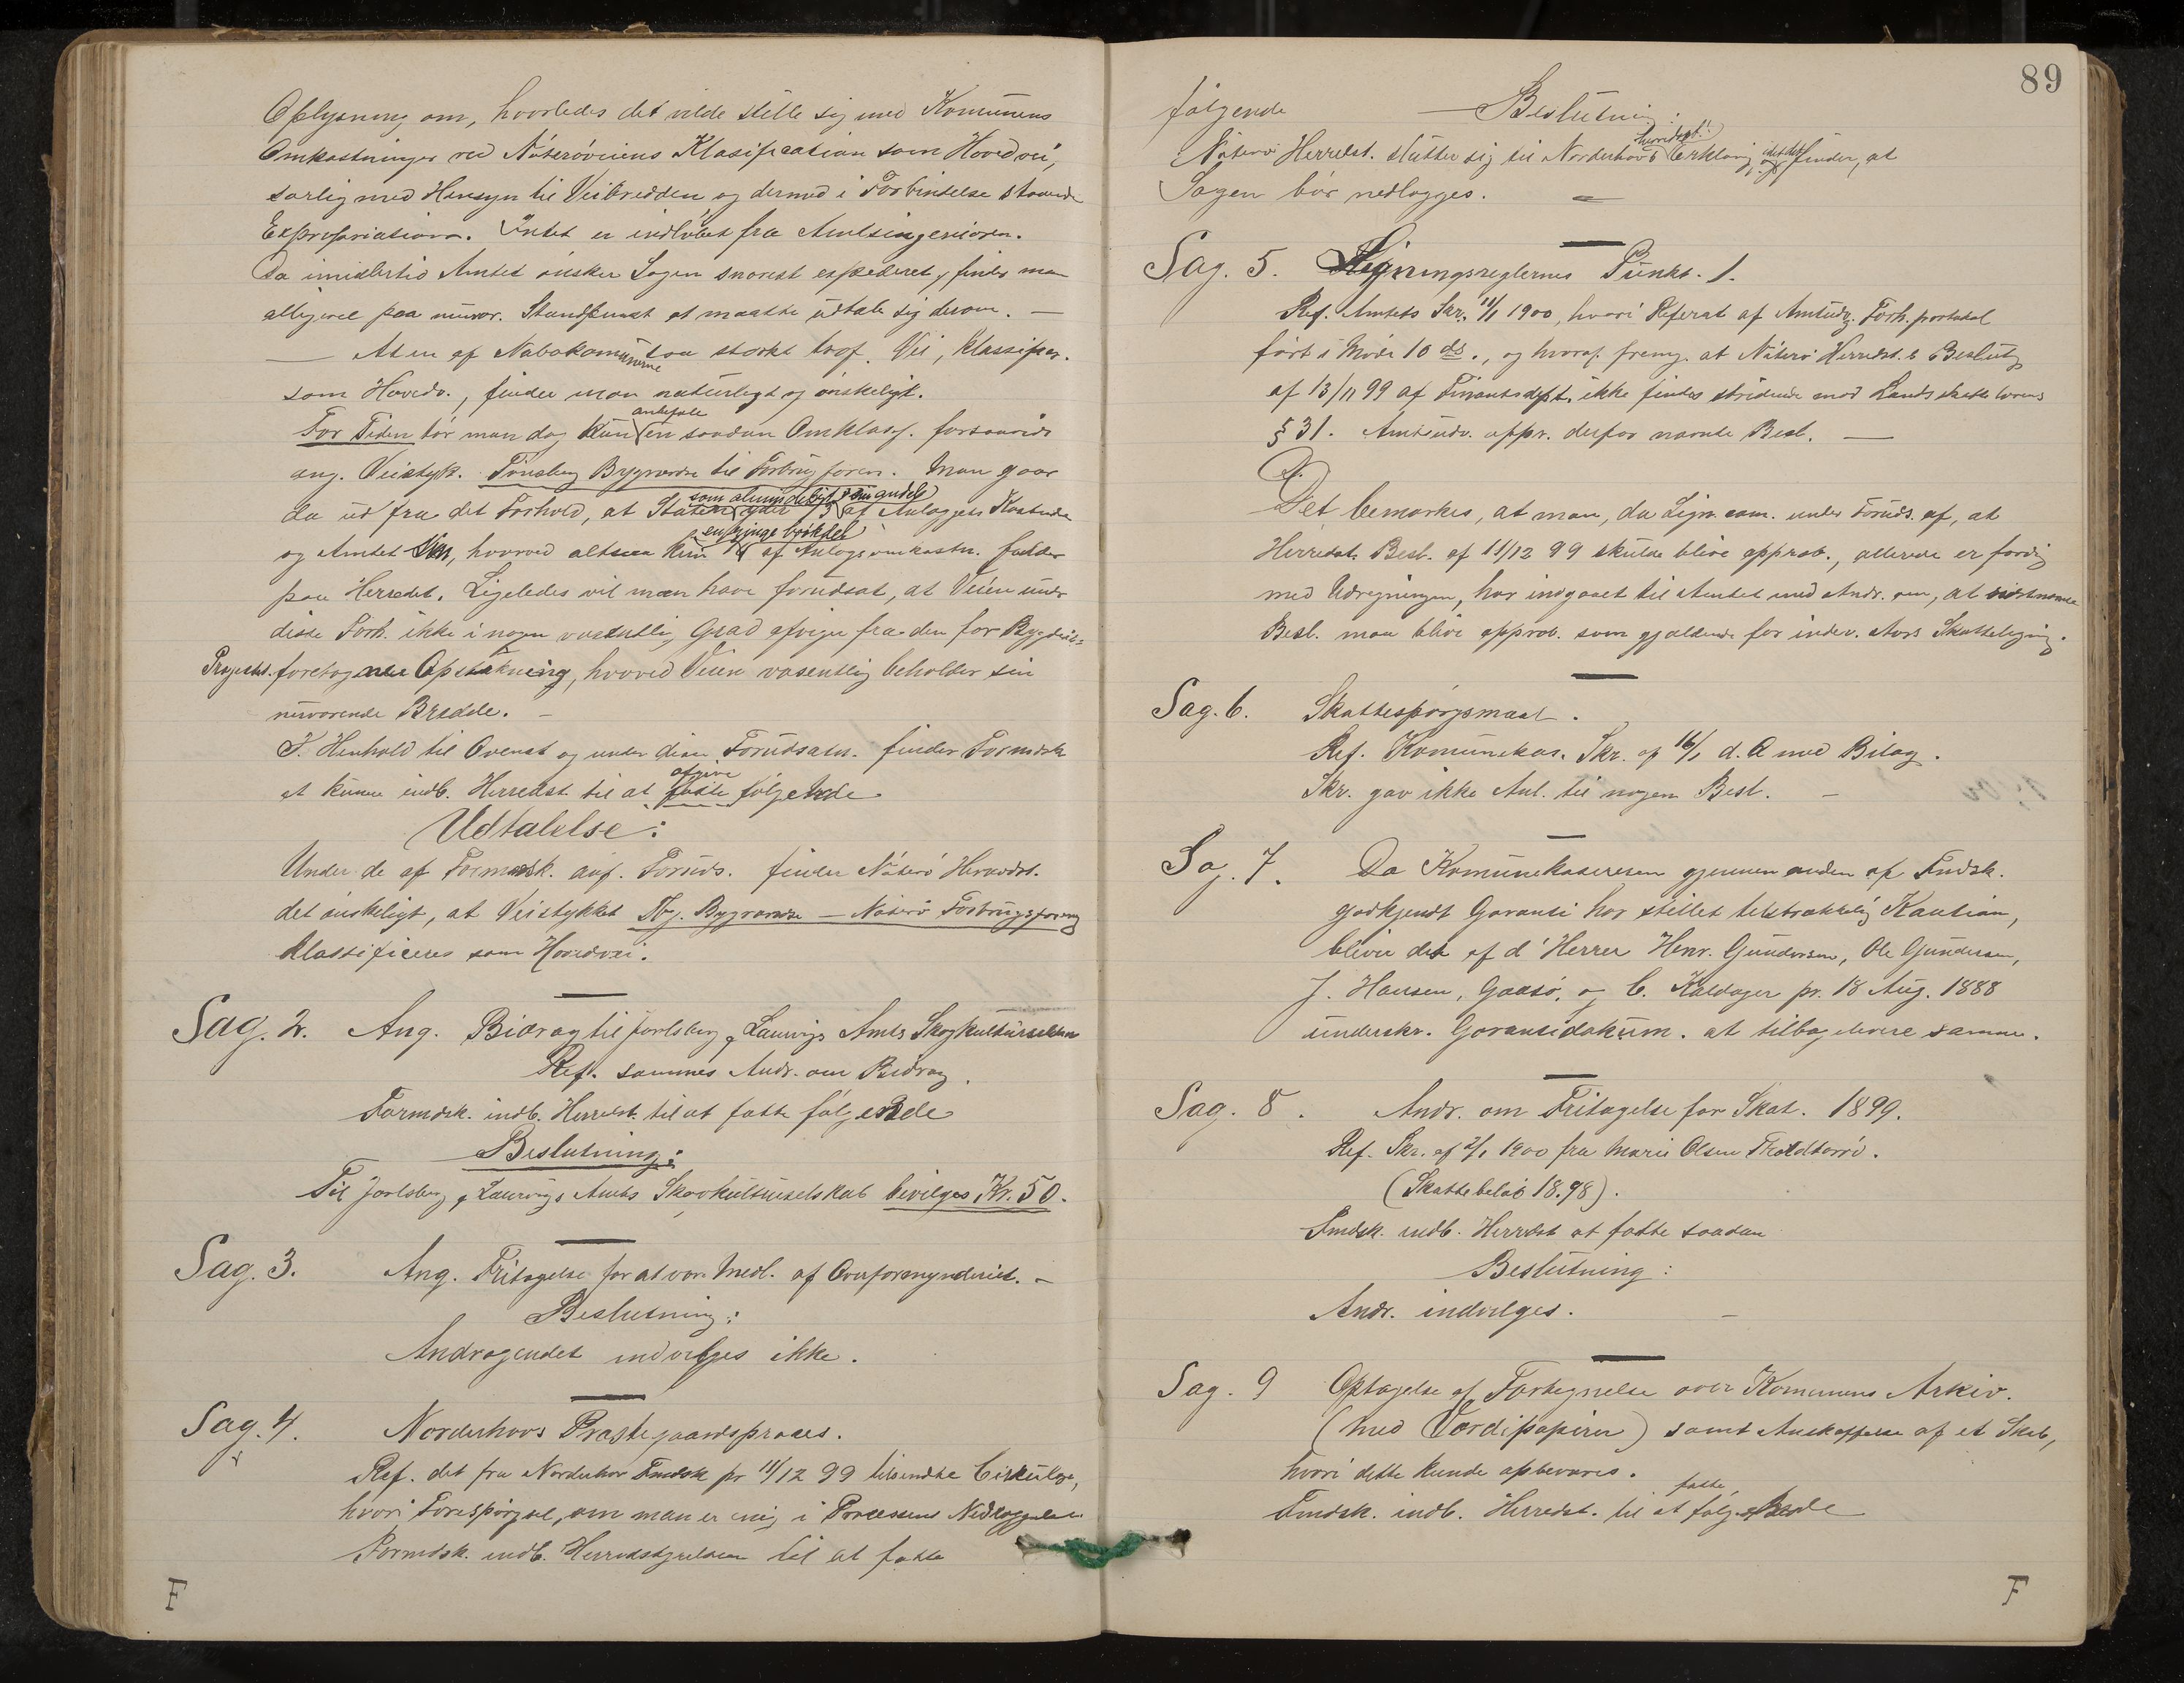 Oplysning om, hvorledes det vilde stille sig med Komunens
Omkostninger ved Nøterøveiens Klasification som Hovedvei,
særlig med Hensyn til Veibredden og dermed i Forbindelse staaende
Expropriation. Intet er indløbet fra Amtsingeniøren.
Da imidlertid Amtet ønsker Sagen snarest expederet, finder man
alligevel paa nuvær. Standpunkt at maatte udtale sig derom. —
— At en af Nabokomunerne saa stærkt traf. Vei, klassifiser.
som Hovedv., finder man naturligt og ønskeligt.
anbefale
For Tiden tør man dog kun en saadan Omklasf. forsaavidt
ang. Veistyk. Tønsberg Bygrændse til Forbrugsforen. Man gaar
som almindeligt sin andel
da ud fra det Forhold, at Staten yder af Anlæggets Kostende
en ringe brøkdel
og Amtet, hvorved altsaa kun af Anlægsomkostn. falder
paa Herredet. Ligeledes vil man have forudsat, at Veien under
disse Forh. ikke i nogen væsentlig Grad afviger fra den for Bygdevei-
Projectet foretagne Opstikning, hvorved Veien væsentlig beholder sin
nuværende Bredde. —
I Henhold til Ovenst og under disse Forudsætn. finder Formdsk
afgive
at kunne indb. Herredst. til at fatte følgende
Udtalelse:
Under de af Formdsk. anf. Foruds. finder Nøterø Herredst.
det ønskeligt, at Veistykket Tbg. Bygrændse — Nøterø Forbrugsforening
klassificeres som Hovedvei.
Sag. 2. Ang. Bidrag til Jarlsberg & Laurvigs Amts Skogkulturselskab
Ref. sammes Andr. om Bidrag.
Formdsk. indb. Herredst. til at fatte følgende
Beslutning:
Til Jarlsberg & Laurvigs Amts Skovkulturselskab bevilges Kr. 50.
Sag. 3. Ang. Fritagelse for at være Medl. af Overformynderiet. —
Beslutning:
Andragendet indvilges ikke.
Sag. 4. Norderhovs Præstegaardsproces.
Ref. det fra Norderhov Fmdsk pr 11/12 99 tilsendte Cirkulære,
hvori Forespørgsel, om man er enig i Processens Nedlæggelse
Formdsk. indb. Herredstyrelsen til at fatte
F
89
følgende — Beslutning:
Nøterø Herredst. slutter sig til Norderhovs Erklæring, og finder, at
Sagen bør nedlægges. —
Sag. 5. Ligningsreglernes Punkt. 1.
Ref. Amtets Skr. 11/1 1900, hvori Referat af Amtudv. Forh. protokol
ført i Møde 10 ds., og hvoraf fremg. at Nøterø Herredst.s Beslutg
af 13/11 99 af Finantsdept. ikke findes stridende mod Landsskattelovens
§ 31. Amtsudv. appr. derfor nævnte Besl. —
Det bemærkes, at man, da Lign. com. under Foruds. af, at
Herredst. Besl. af 11/12 99 skulde blive approb., allerede er færdig
med Udregningen, har indgaaet til Amtet med Andr. om, at sidstnævnte
Besl. maa blive approb. som gjældende for indev. Aars Skatteligning.
Sag. 6. Skattespørgsmaal.
Ref. Komunekas. Skr. af 16/1 d. A med Bilag.
Skr. gav ikke Anl. til nogen Besl. —
Sag. 7. Da Komunekasereren gjennem anden af Fmdsk.
godkjendt Garanti har stillet tilstrækkelig Kaution,
bliver det af d'Herrer Henr. Gundersen, Ole Gundersen,
J. Hansen, Gaasø, og C. Kaldager pr. 18 Aug. 1888
underskr. Garantidokum. at tilbagelevere samme.
Sag. 8. Andr. om Fritagelse for Skat. 1899.
Ref. Skr. af 2/1 1900 fra Marie Olsen
(Skattebeløb 18.98).
Fmdsk. indb. Herredst at fatte saadan
Beslutning:
Andr. indvilges. —
Sag. 9 Optagelse af Fortegnelse over Komunens Arkiv.
(med Værdipapirer) samt Anskaffelse af et Skab,
hvori dette kunde opbevares.
fatte
Fmdsk. indb. Herredst. til at følgende
F